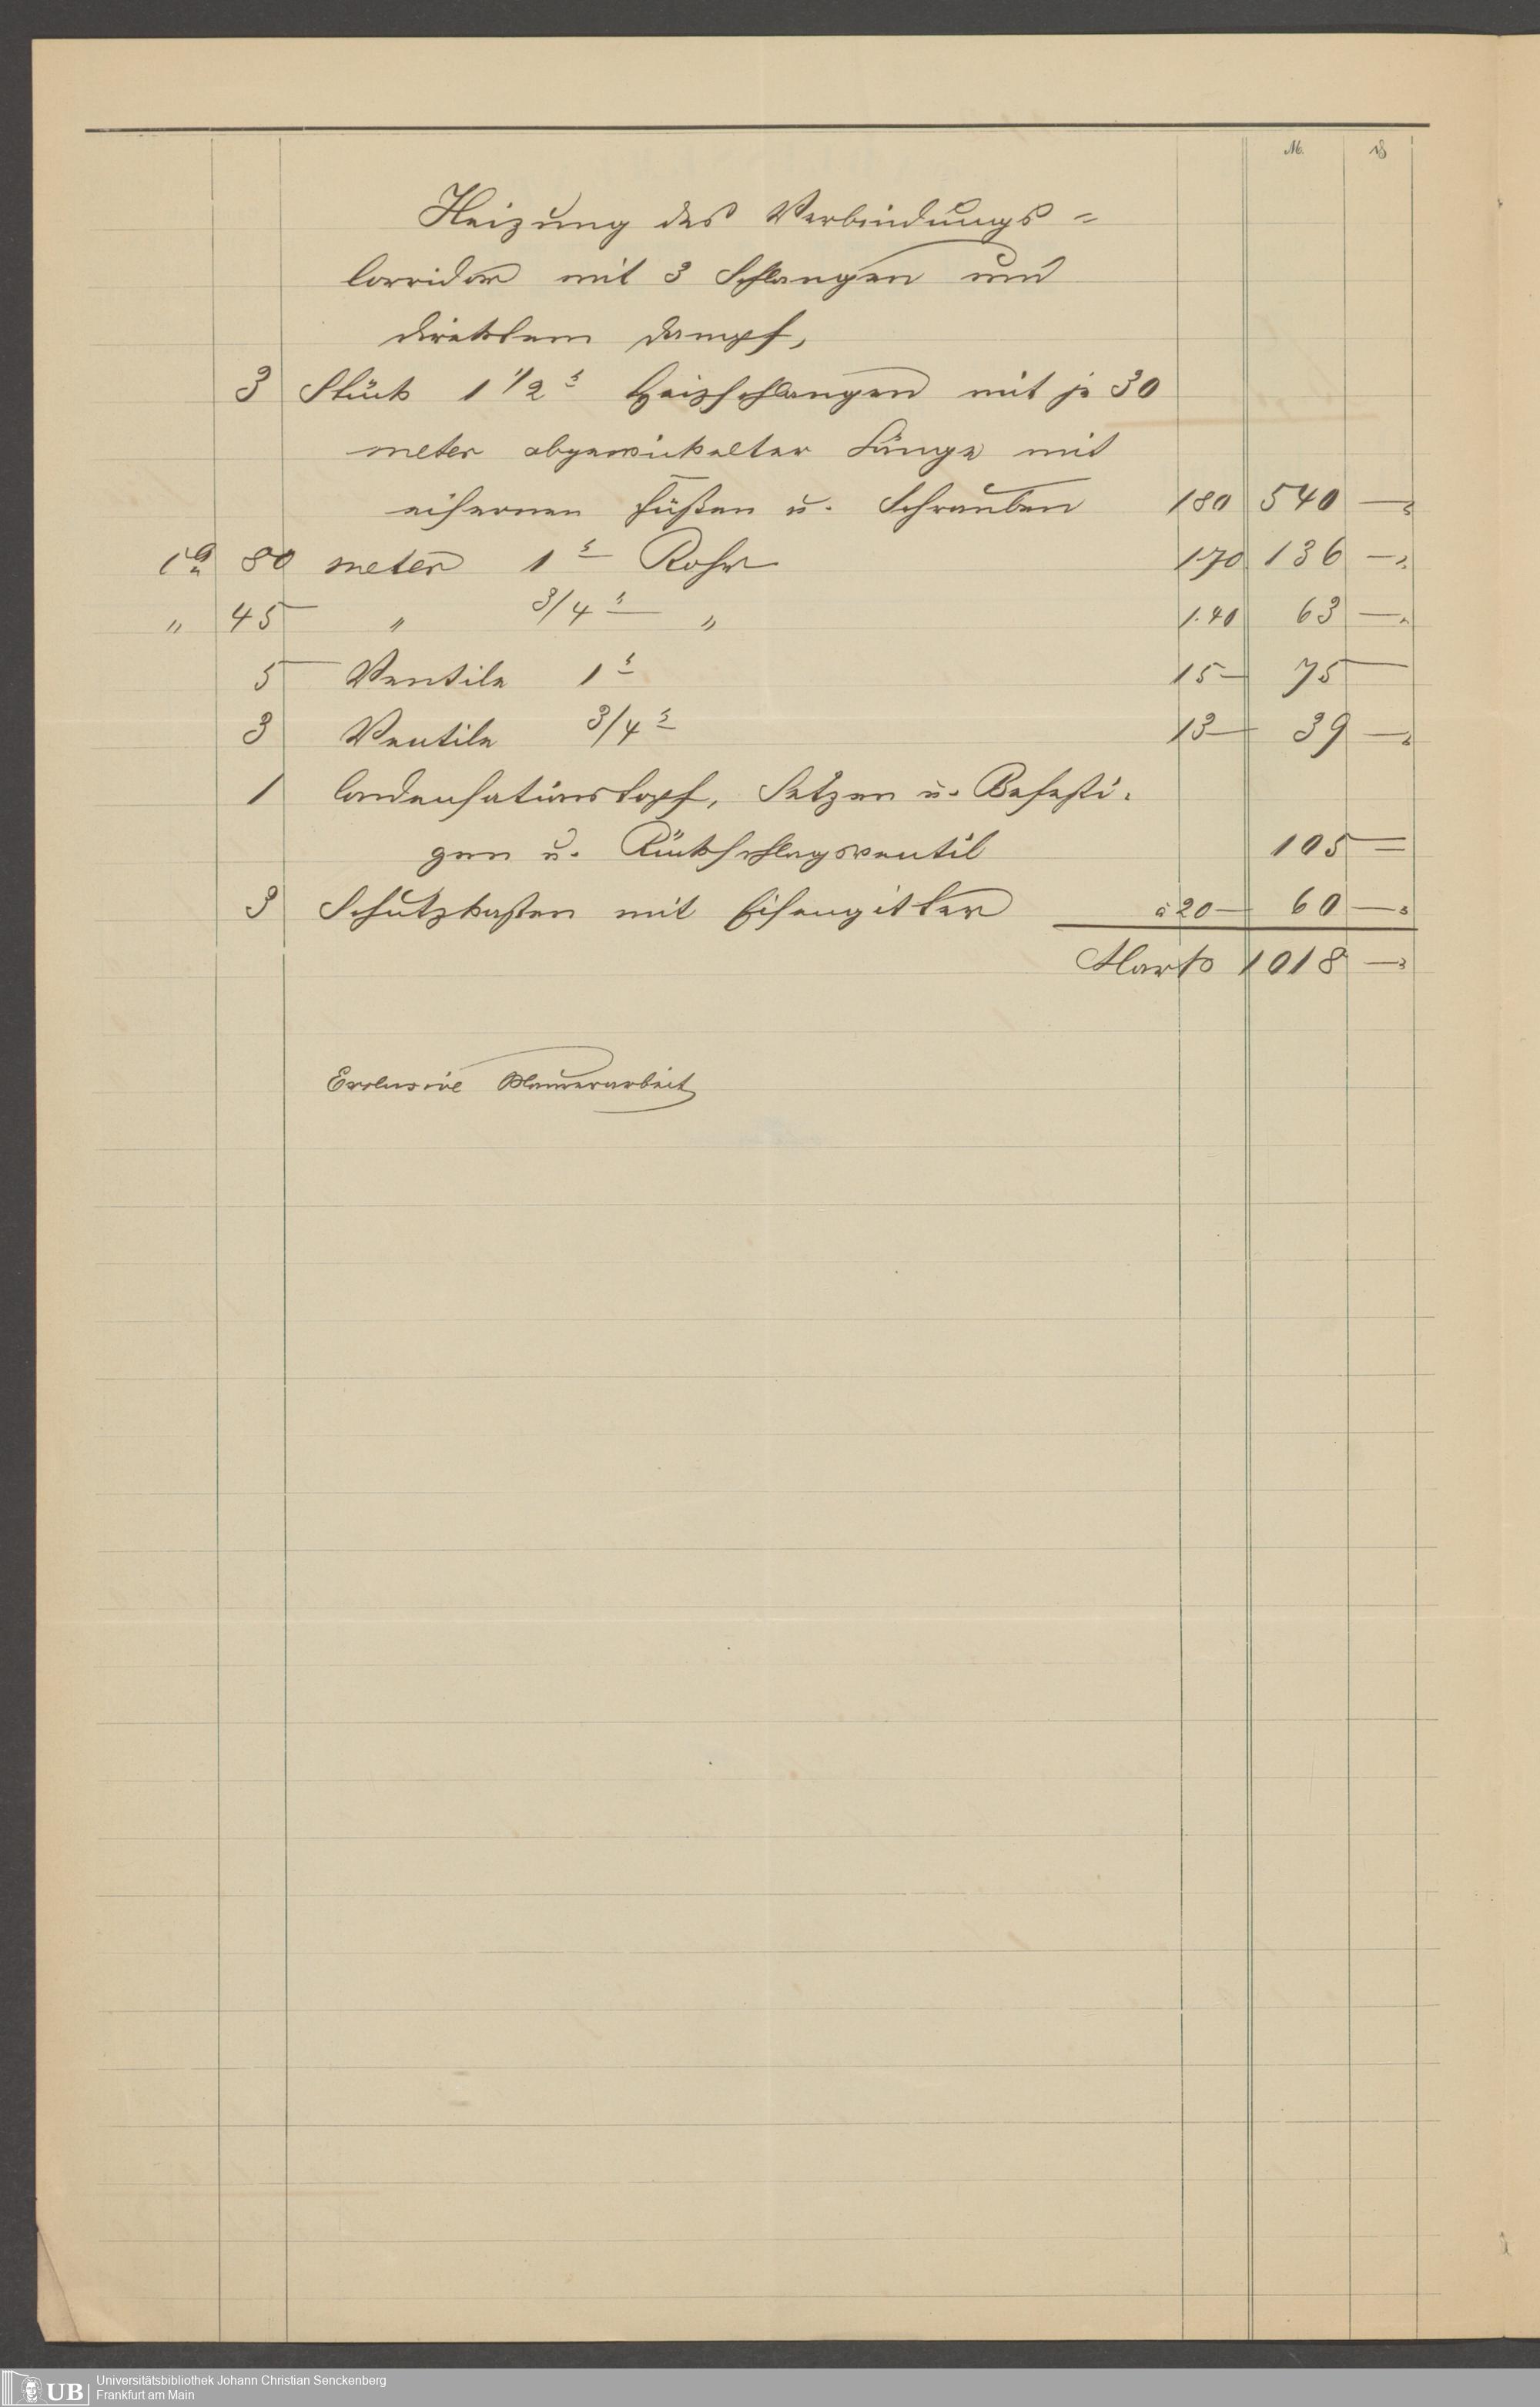 M. ₰
Heizung des Verbindungs=
Corridor mit 3 Schlangen und
direktem Dampf,
3 Stück 1 1/2" Heizschlangen mit je 30
meter abgewickelter Länge mit
eisernen Füßen u. Schrauben 180 540 —
ca 80 meter 1" Rohr 1.70 136 —
" 45 " 3/4" " 1.40 63 —
5 Ventile 1" 15— 75 —
3 Ventile 3/4" 13— 39 —
1 Condensationstopf, Setzen u. Befesti=
gen u. Rückschlagsventil 105 =
3 Schutzkasten mit Eisengitter à 20— 60 —
Mark 1018 —
Exclusive Maurerarbeit
UB Universitätsbibliothek Johann Christian Senckenberg
Frankfurt am Main